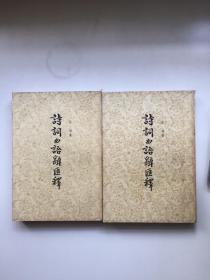 詩詞曲語辭匯釋
詩詞曲語辭匯釋